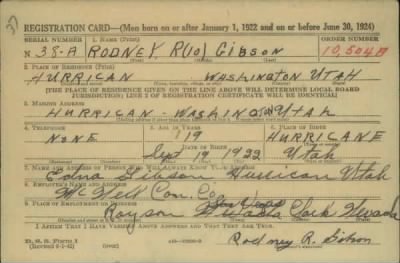 REGISTRATION CARD—(Men born on or after January 1, 1922 and on or before June 30, 1924)
SERIAL NUMBER 1. NAME (Print) ORDER NUMBER
N 38-A RODNEY R(UO) GIBSON 10,504A
(First) (Middle) (Last)
2. PLACE OF RESIDENCE (Print)
HURRICAN WASHINGTON UTAH
[THE PLACE OF RESIDENCE GIVEN ON THE LINE ABOVE WILL DETERMINE LOCAL BOARD JURISDICTION; LINE 2 OF REGISTRATION CERTIFICATE WILL BE IDENTICAL]
3. MAILING ADDRESS
HURRICAN WASHINGTON UTAH
4. TELEPHONE 5. AGE IN YEARS 6. PLACE OF BIRTH
NONE 19 HURRICANE
DATE OF BIRTH
Sept 9 1922 Utah
7. NAME AND ADDRESS OF PERSON WHO WILL ALWAYS KNOW YOUR ADDRESS
Edna Gibson Hurrican Utah
8. EMPLOYER'S NAME AND ADDRESS
Mc Neil Con. Co.
Clark Nevada
I AFFIRM THAT I HAVE VERIFIED ABOVE ANSWERS AND THAT THEY ARE TRUE.
D. S. S. Form 1
(Revised 6-9-42)
Rodney R. Gibson